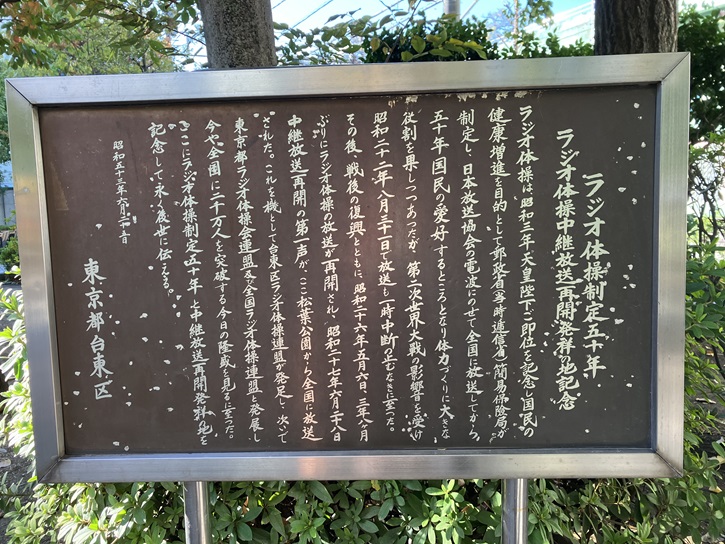 ラジオ体操制定五十年
ラジオ体操中継放送再開発祥の地記念
ラジオ体操は、昭和三年天皇陛下ご即位を記念し国民の
健康増進を目的として郵政省(当時逓信省)簡易保険局が
制定し、日本放送協会の電波にのせて全国に放送してから、
五十年国民の愛好するところとなり体力づくりに大きな
役割を果しつつあったが、第二次世界大戦の影響を受け
昭和二十二年八月三十一日で放送も一時中断の止むなきに至った。
その後、戦後の復興とともに、昭和二十六年五月六日、三年八月
ぶりにラジオ体操の放送が再開され、昭和二十七年六月二十八日
中継放送再開の第一声が、ここ松葉公園から全国に放送
された。これを機として台東区ラジオ体操連盟が発足し、次いで
東京都ラジオ体操会連盟及び全国ラジオ体操連盟と発展し
今や全国に二千万人を突破する今日の隆盛を見るに至った。
ここにラジオ体操制定五十年と中継放送再開発祥の地を
記念して永く後世に伝える。
昭和五十三年六月二十五日
東京都台東区